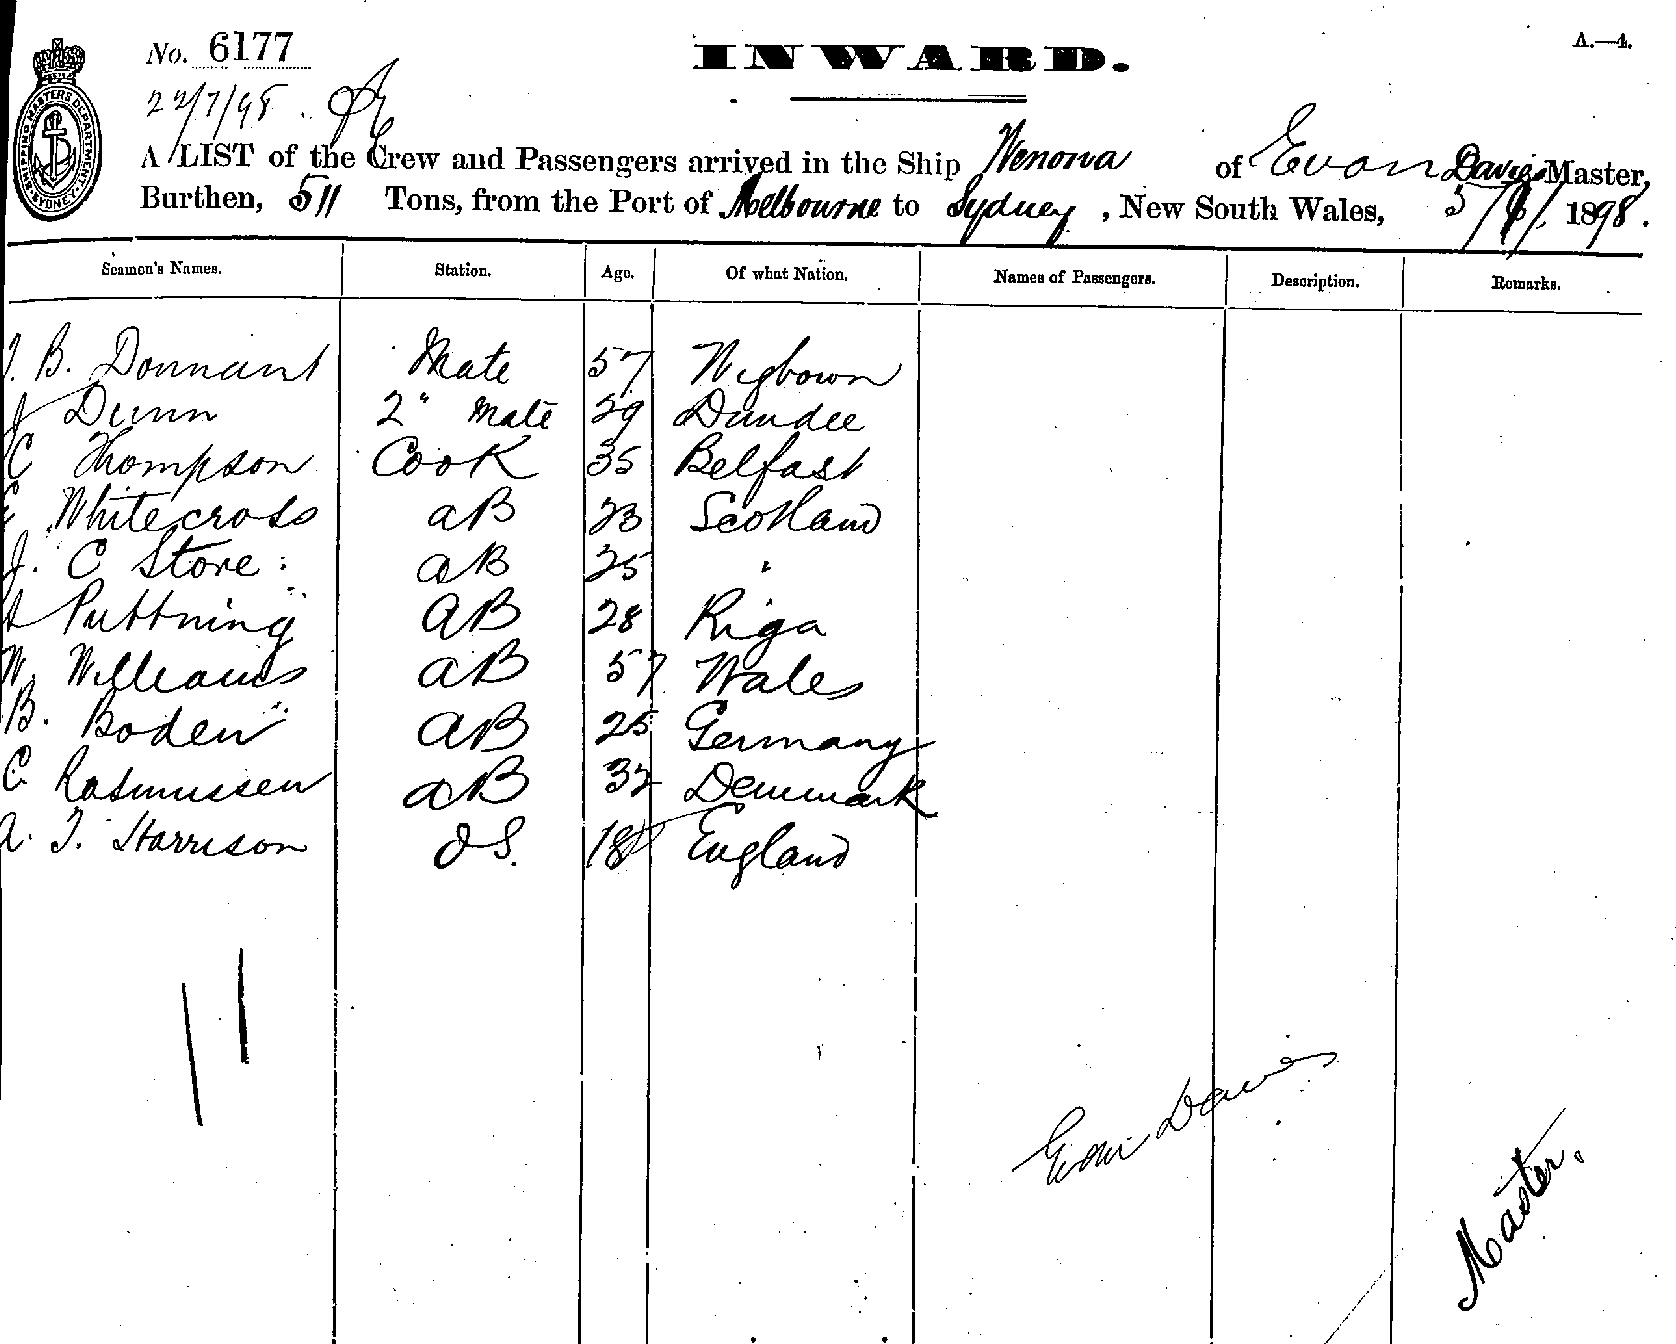 No. 6177
INWARD.
A.—4.
22/7/98
SHIPPING MASTERS DEPARTMENT SYDNEY
A LIST of the Crew and Passengers arrived in the Ship Wenona of Evan Davies Master,
Burthen, 511 Tons, from the Port of Melbourne to Sydney, New South Wales, 5/7/1898.
Seamen's Names. Station. Age. Of what Nation. Names of Passengers. Description. Remarks.
B. Donnant Mate 57 Wigtown
J Dunn 2" Mate 29 Dundee
C Thompson Cook 35 Belfast
Whitecross AB 23 Scotland
J. C Stove AB 25 "
Puttning AB 28 Riga
W. Williams AB 57 Wales
B. Boden AB 25 Germany
C. Rasmussen AB 32 Denmark
A. T. Harrison OS. 18 England
11
Evan Davies
Master.